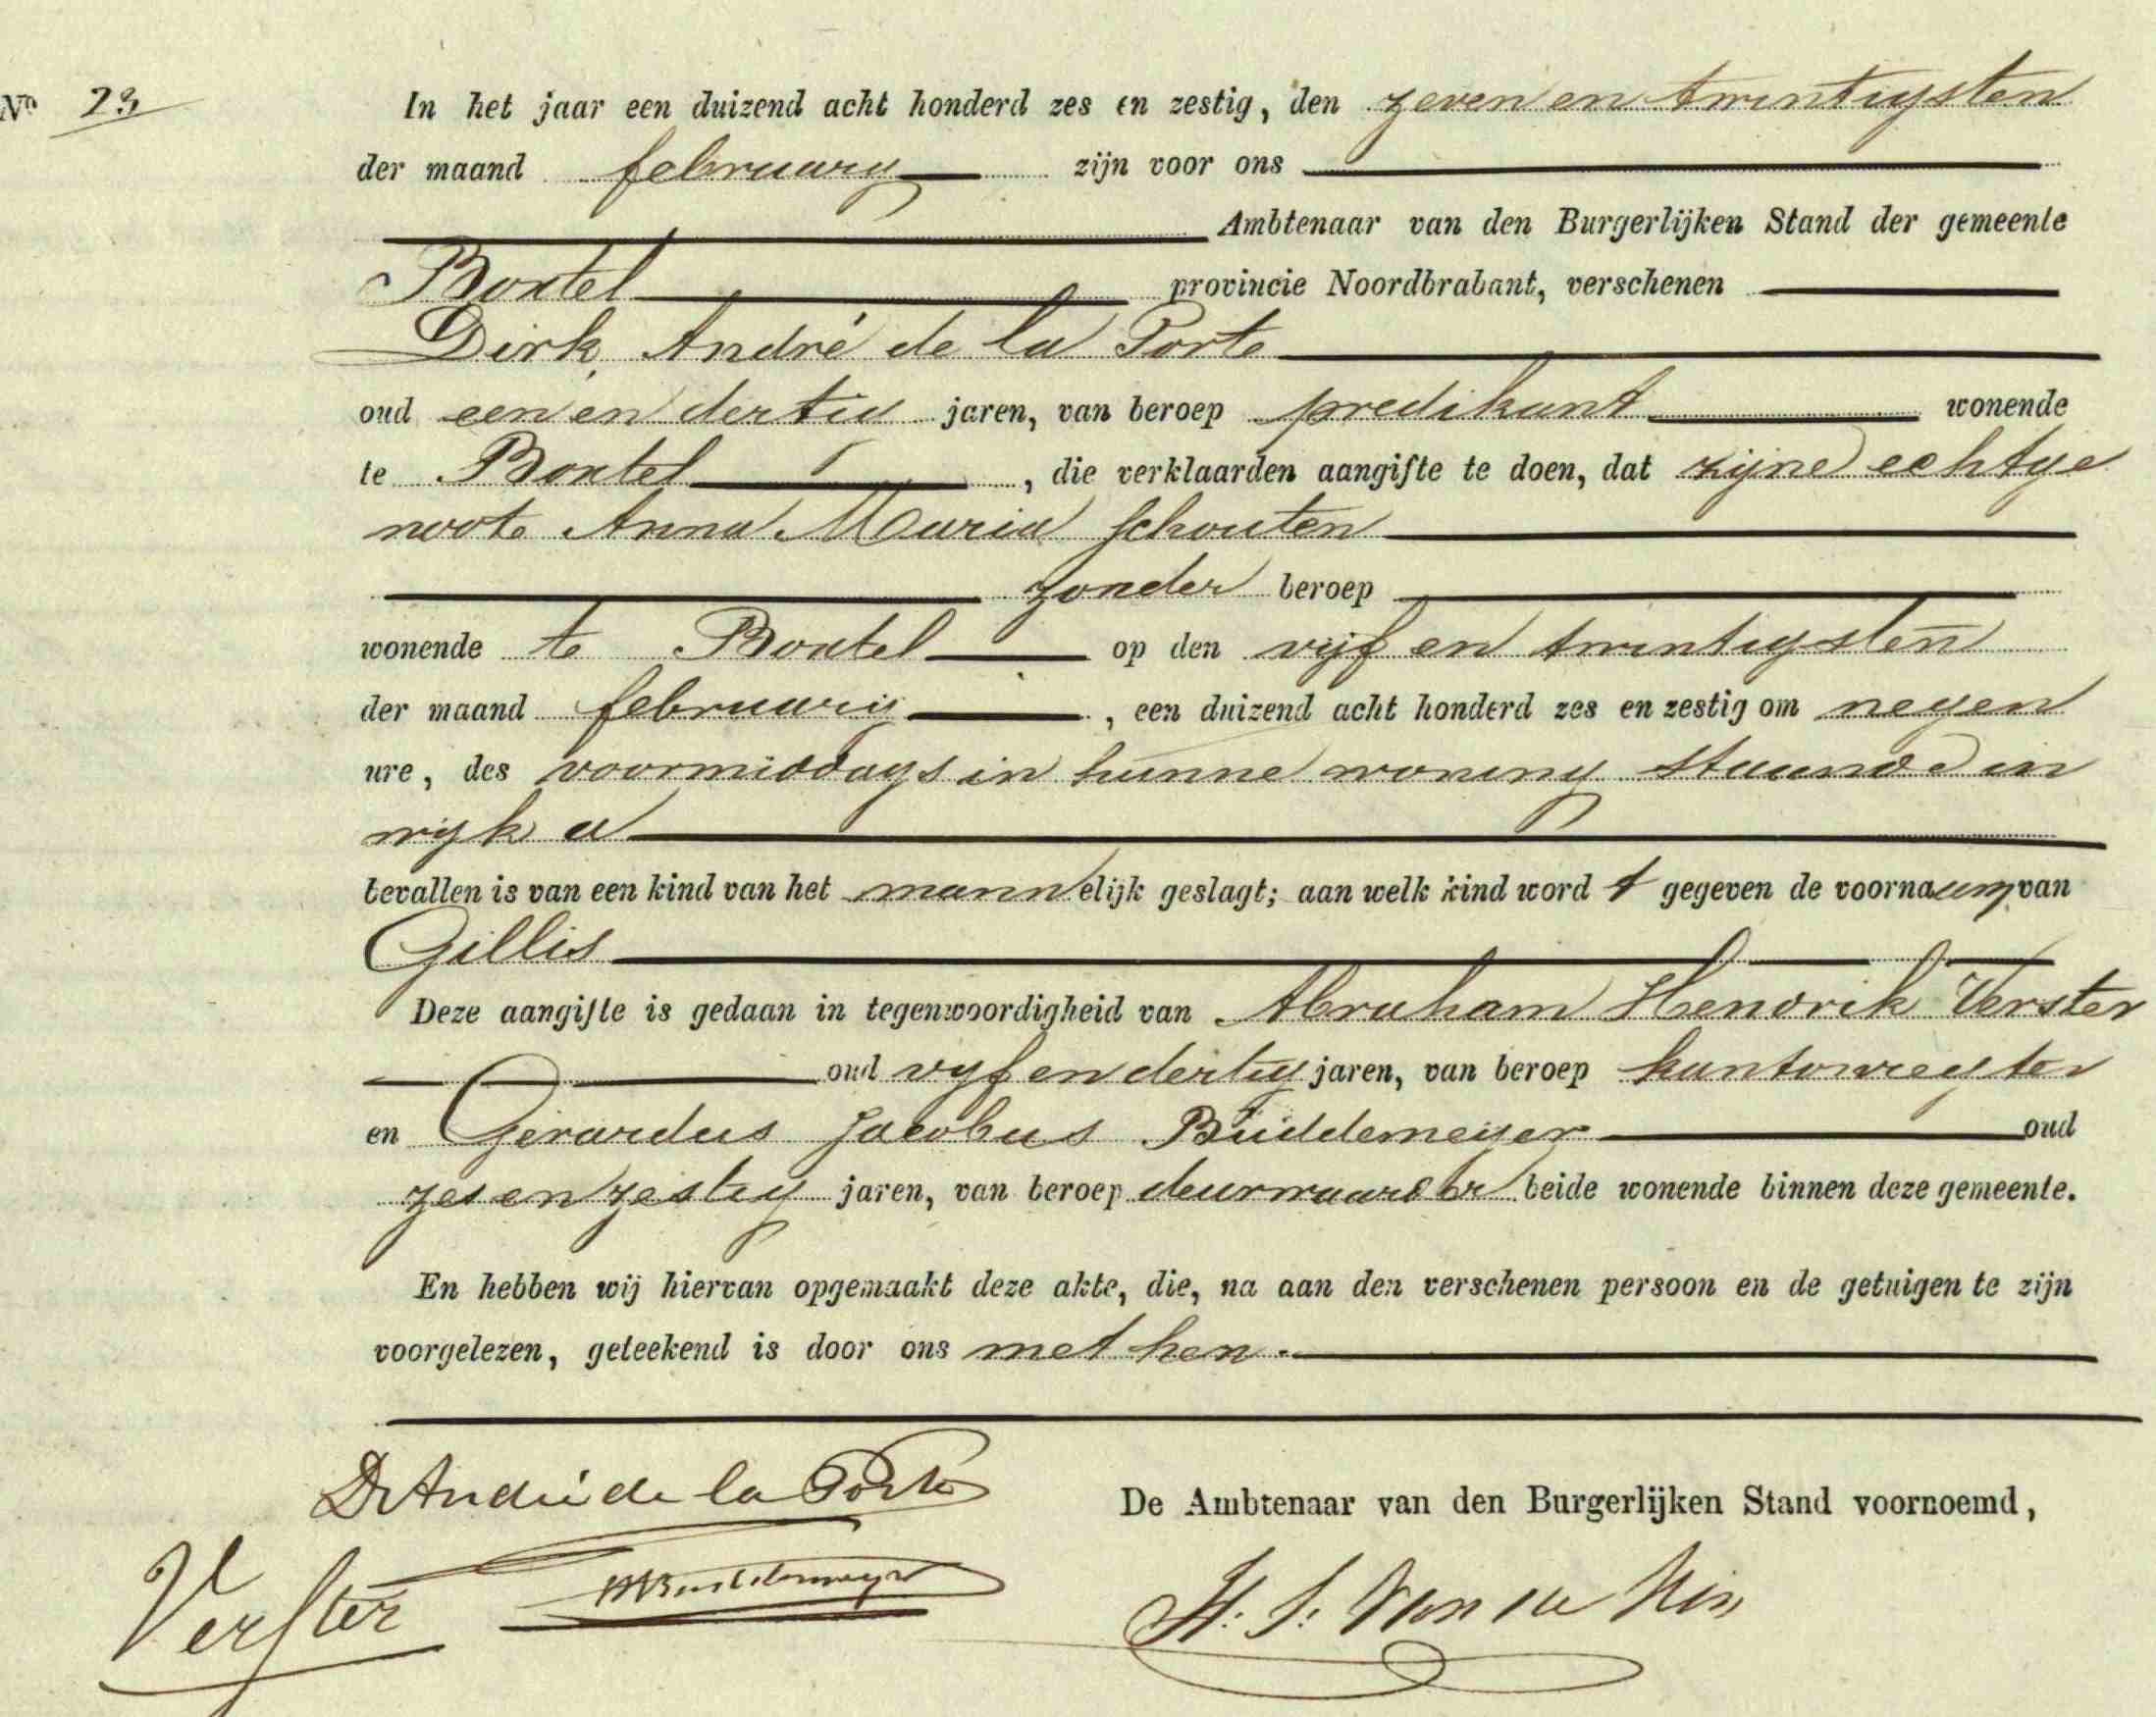 No 23
In het jaar een duizend acht honderd zes en zestig, den zeven en twintigsten
der maand february zijn voor ons
Ambtenaar van den Burgerlijken Stand der gemeente
Boxtel provincie Noordbrabant, verschenen
Dirk, André de la Porte
oud een en dertig jaren, van beroep predikant wonende
te Boxtel, die verklaarden aangifte te doen, dat zijne echtge
noote Anna Maria Schouten
zonder beroep
wonende te Boxtel op den vijf en twintigsten
der maand februarij, een duizend acht honderd zes en zestig om negen
ure, des voormiddags in hunne woning staande in
wijk a
bevallen is van een kind van het mannelijk geslagt; aan welk kind wordt gegeven de voornaam van
Gillis
Deze aangifte is gedaan in tegenwoordigheid van Abraham Hendrik Verster
oud vijf en dertig jaren, van beroep kantonregter
en Gerardus Jacobus Buddemeijer oud
zes en zestig jaren, van beroep deurwaarder beide wonende binnen deze gemeente.
En hebben wij hiervan opgemaakt deze akte, die, na aan den verschenen persoon en de getuigen te zijn
voorgelezen, geteekend is door ons met hen.
D André de la Porte
De Ambtenaar van den Burgerlijken Stand voornoemd,
Verster
H. S. Van